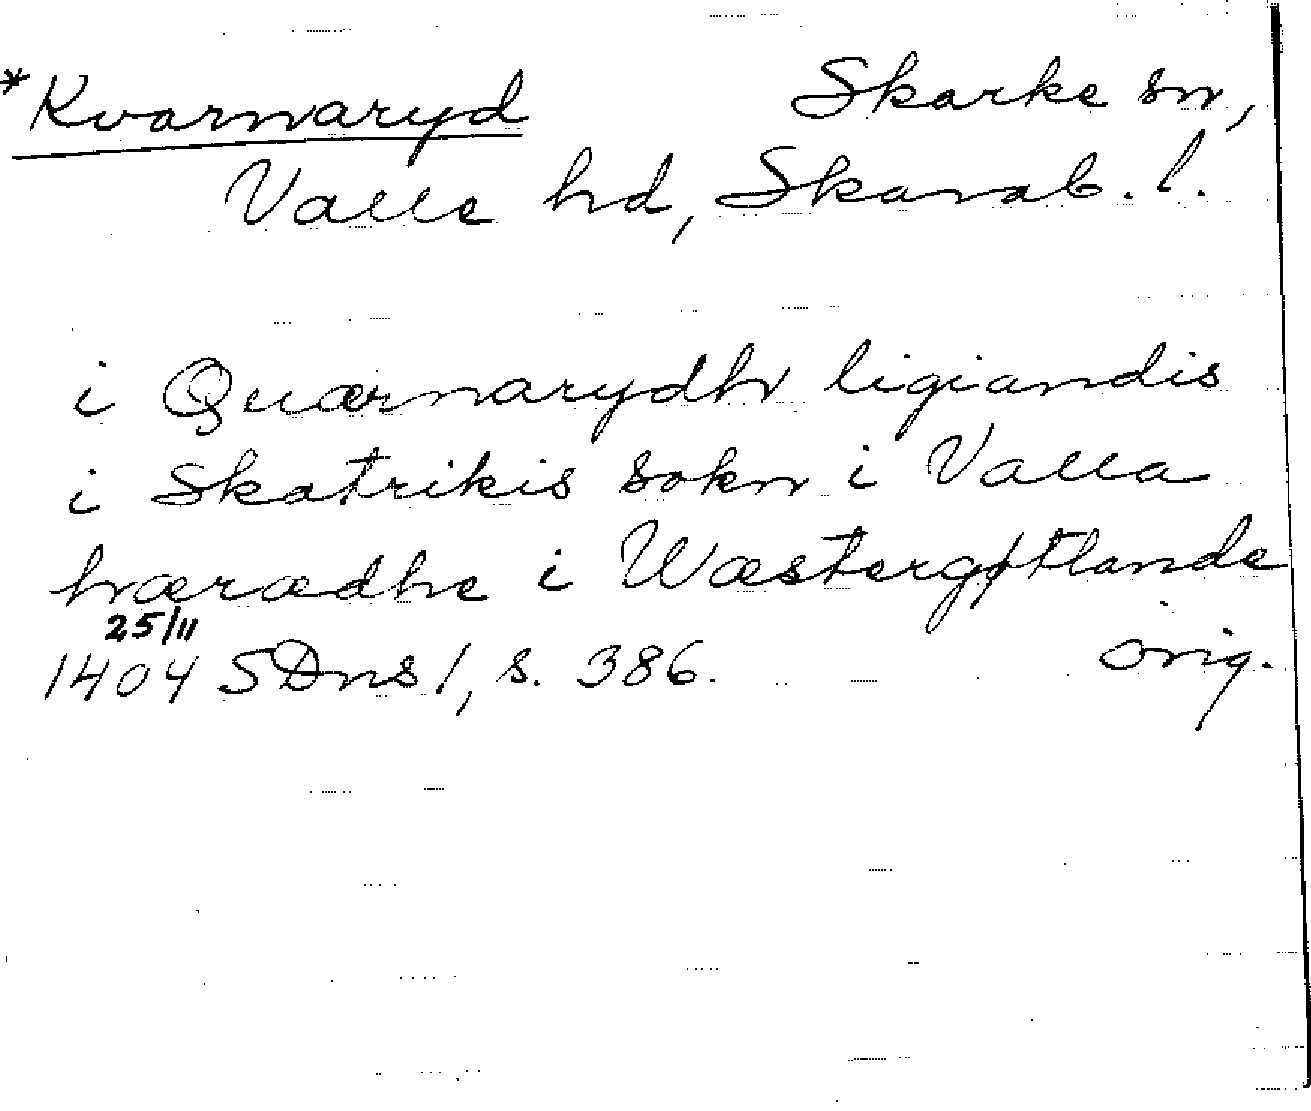 *Kvarnaryd Skarke sn,
Valle hd, Skarab. l.
i Quærnarydh ligiandis
i Skatrikis sokn i Valla
hæradhe i Wæstergøtlande
25/11
1404 SDns 1, s. 386. orig.